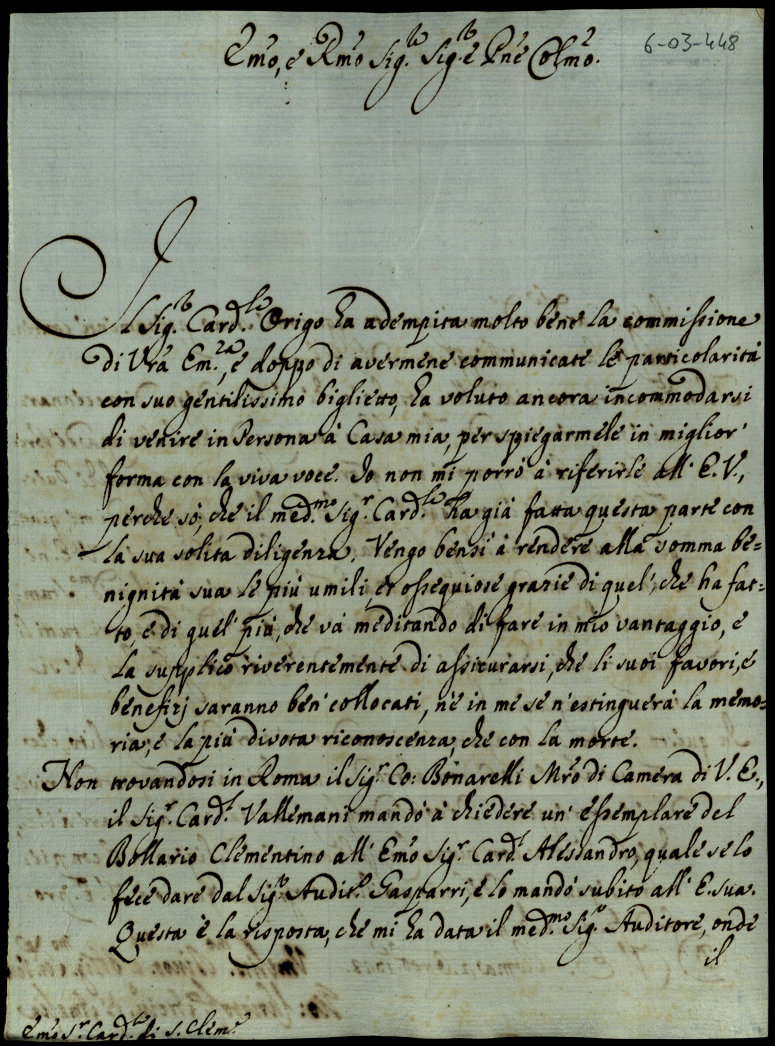 6-03-448
Em͂o, e Rm͂o Sig.r Sig.r e Pn͂e Colm͂o.
Il Sig.r Card.le Origo ha adempita molto bene la commissione
di Vr͂a Em.za, e doppo di avermene communicate le particolarità
con suo gentilissimo biglietto, ha voluto ancora incommodarsi
di venire in Persona à Casa mia, per spiegarmele in miglior'
forma con la viva voce. Io non mi porrò à riferirle all' E.V.,
perche sò, che il med.mo Sig.r Card.le ha già fatta questa parte con
la sua solita diligenza, Vengo bensì à rendere alla somma be=
nignità sua le più umili, et ossequiose grazie di quel', che ha fat=
to, e di quel' più, che và meditando di fare in mio vantaggio, e
la supplico riverentemente di assicurarsi, che li suoi favori, e
benefizj saranno ben' collocati, nè in me se n'estinguerà la memo=
ria, e la più divota riconoscenza, che con la morte.
Non trovandosi in Roma il Sig.r Co: Bonarelli Mr͂o di Camera di V. E.,
il Sig.r Card.l Vallemani mandò à chiedere un' essemplare del
Bollario Clementino all' Em͂o Sig.r Card.l Alessandro, quale se lo
fece dare dal Sig.r Audit.r Gasparri, e lo mandò subito all' E. sua.
Questa è la risposta, che mi ha data il med.mo Sig.r Auditore, onde
il
Em͂o S.r Card.le di S. Clem.e